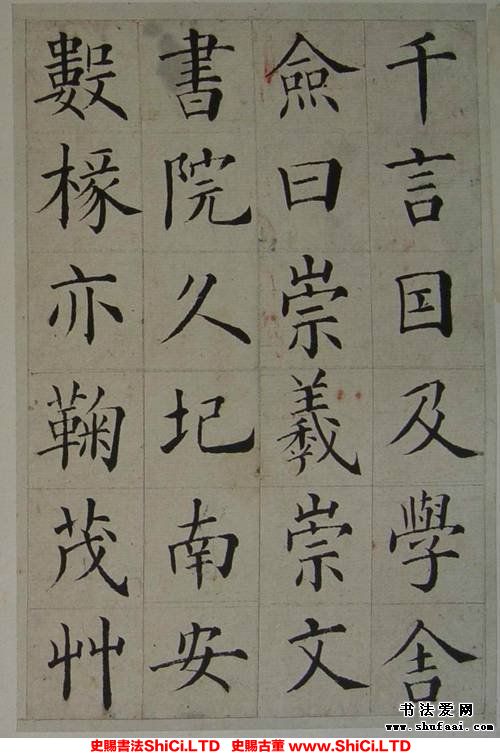 千言因及學舍
僉曰崇義崇文
書院久圮南安
數椽亦鞠茂艸
书法爱网
www.shufaai.com
史賜書法ShiCi.LTD 史賜古董 www.ShiCi.LTD